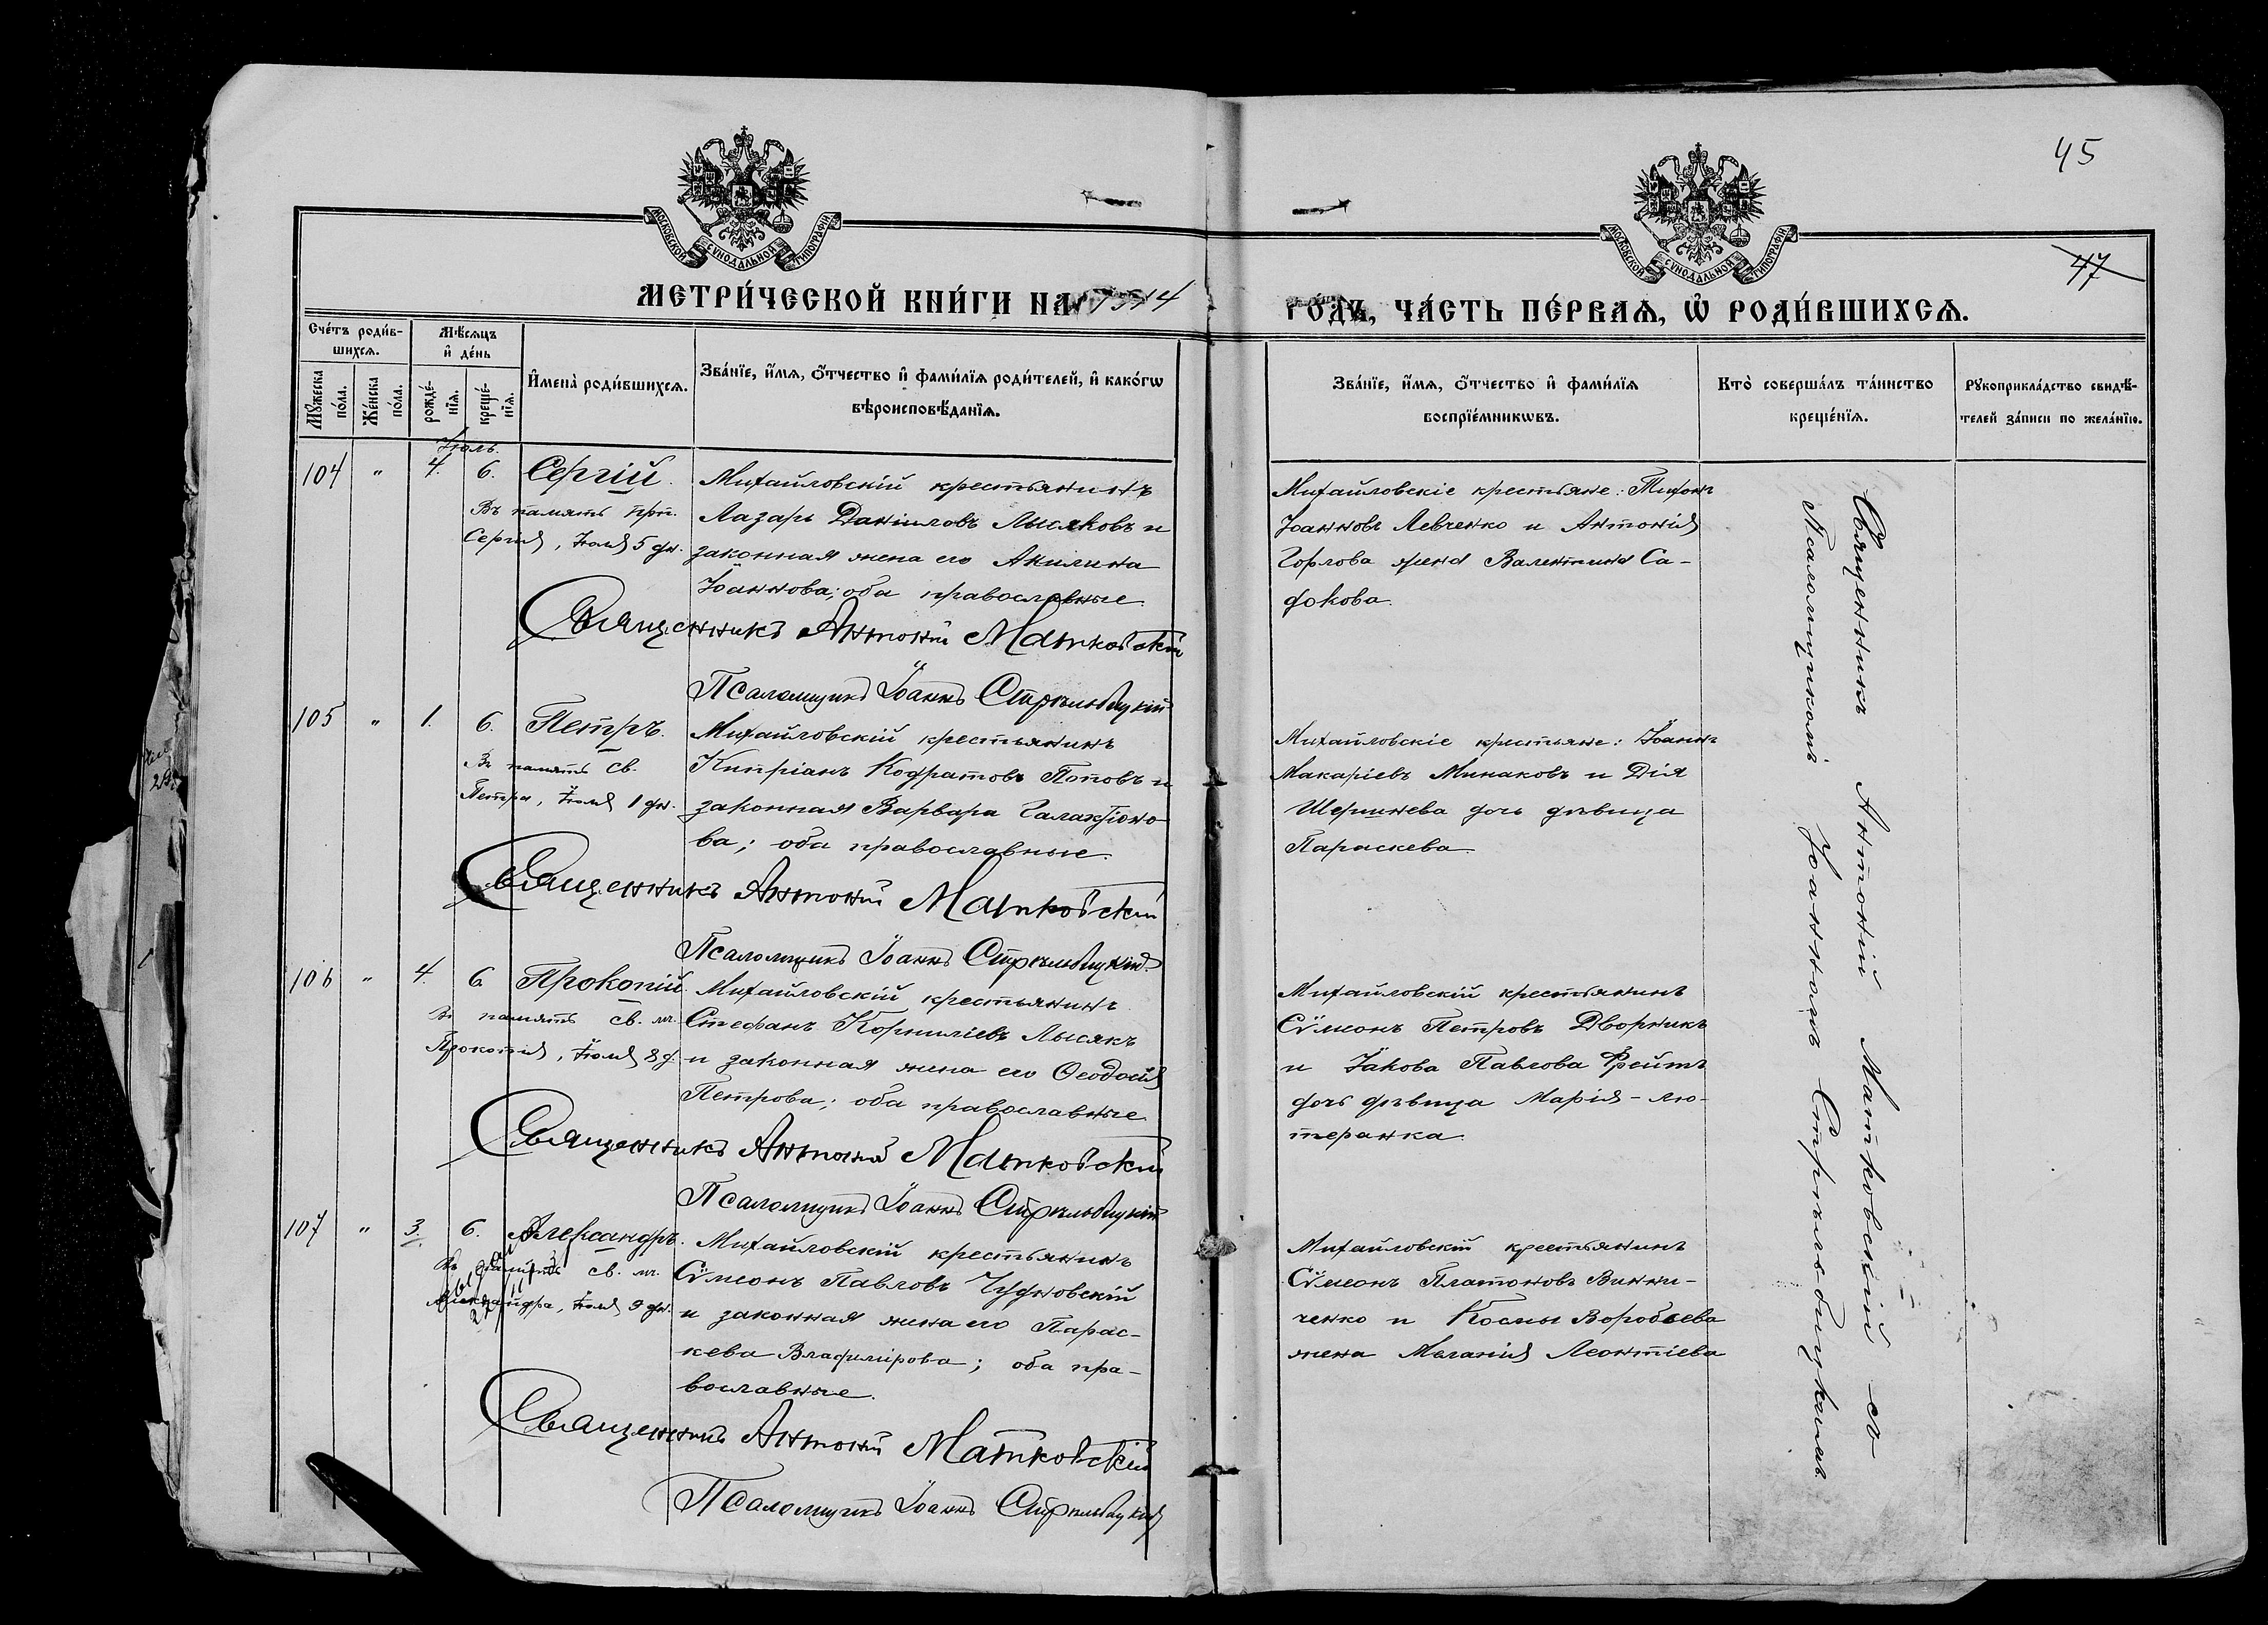 45
47
МОСКОВСКОЙ СУНОДАЛЬНОЙ ТИПОГРАФІИ
МОСКОВСКОЙ СУНОДАЛЬНОЙ ТИПОГРАФІИ
МЕТРИ́ЧЕСКОЙ КНИ́ГИ НА 1914 ГО́ДЪ, ЧА́СТЬ ПЕ́РВАѦ, Ѡ҆ РОДИ́ВШИХСѦ.
Сче́тъ роди́в-
шихсѧ.
Мѣ́сѧцъ
и҆ де́нь
Мꙋ́жеска
по́ла.
Же́нска
по́ла.
рожде́-
нїѧ.
креще́-
нїѧ.
И҆мена̀ роди́вшихсѧ.
Зва́нїе, и҆́мѧ, ѻ҆́тчество и҆ фами́лїѧ роди́телей, и҆ како́гѡ
вѣроисповѣ́данїѧ.
Зва́нїе, и҆́мѧ, ѻ҆́тчество и҆ фами́лїѧ
воспрїе́мникѡвъ.
Кто̀ соверша́лъ та́инство
креще́нїѧ.
Рꙋкоприкла́дство свидѣ́-
телей за́писи по жела́нїю.
Іюль.
104 " 4. 6. Сергій.
Въ память прп.
Сергія, Іюля 5 дн.
Михайловскій крестьянинъ
Лазарь Даніиловъ Лысяковъ и
законная жена его Акилина
Іоаннова; оба православные.
Священникъ Антоній Матковскій
Псаломщикъ Іоаннъ Стрѣльбицкій
Михайловскіе крестьяне: Тихонъ
Іоанновъ Левченко и Антонія
Горлова жена Валентина Са-
докова.
105 " 1. 6. Петръ.
Въ память св.
Петра, Іюля 1 дн.
Михайловскій крестьянинъ
Кипріанъ Кодратовъ Поповъ и
законная Варвара Галактіоно-
ва; оба православные.
Священникъ Антоній Матковскій
Псаломщикъ Іоаннъ Стрѣльбицкій.
Михайловскіе крестьяне: Іоаннъ
Макаріевъ Минаковъ и Дія
дочь дѣвица
Параскева.
106 " 4. 6. Прокопій.
Въ память св. мч.
Прокопія, Іюля 8 д.
Михайловскій крестьянинъ
Стефанъ Корниліевъ Лысякъ
и законная жена его Ѳеодосія
Петрова; оба православные
Священникъ Антоній Матковскій
Псаломщикъ Іоаннъ Стрѣльбицкій
Михайловскій крестьянинъ
Сѵмеонъ Петровъ Дворникъ
и Іакова Павлова Фрейтъ
дочь дѣвица Марія - лю-
теранка.
107 " 3. 6. Александръ.
Въ память св. мч.
Александра, Іюля 9 дн.
Михайловскій крестьянинъ
Сѵмеонъ Павловъ Чудновскій
и законная жена его Парас-
кева Владимірова; оба пра-
вославные.
Священникъ Антоній Матковскій
Псаломщикъ Іоаннъ Стрѣльбицкій
Михайловскій крестьянинъ
Сѵмеонъ Платоновъ Винни-
ченко и Космы Воробьева
жена Меланія Леонтіева
Священникъ Антоній Матковскій съ
Псаломщикомъ Іоанномъ Стрѣльбицкимъ